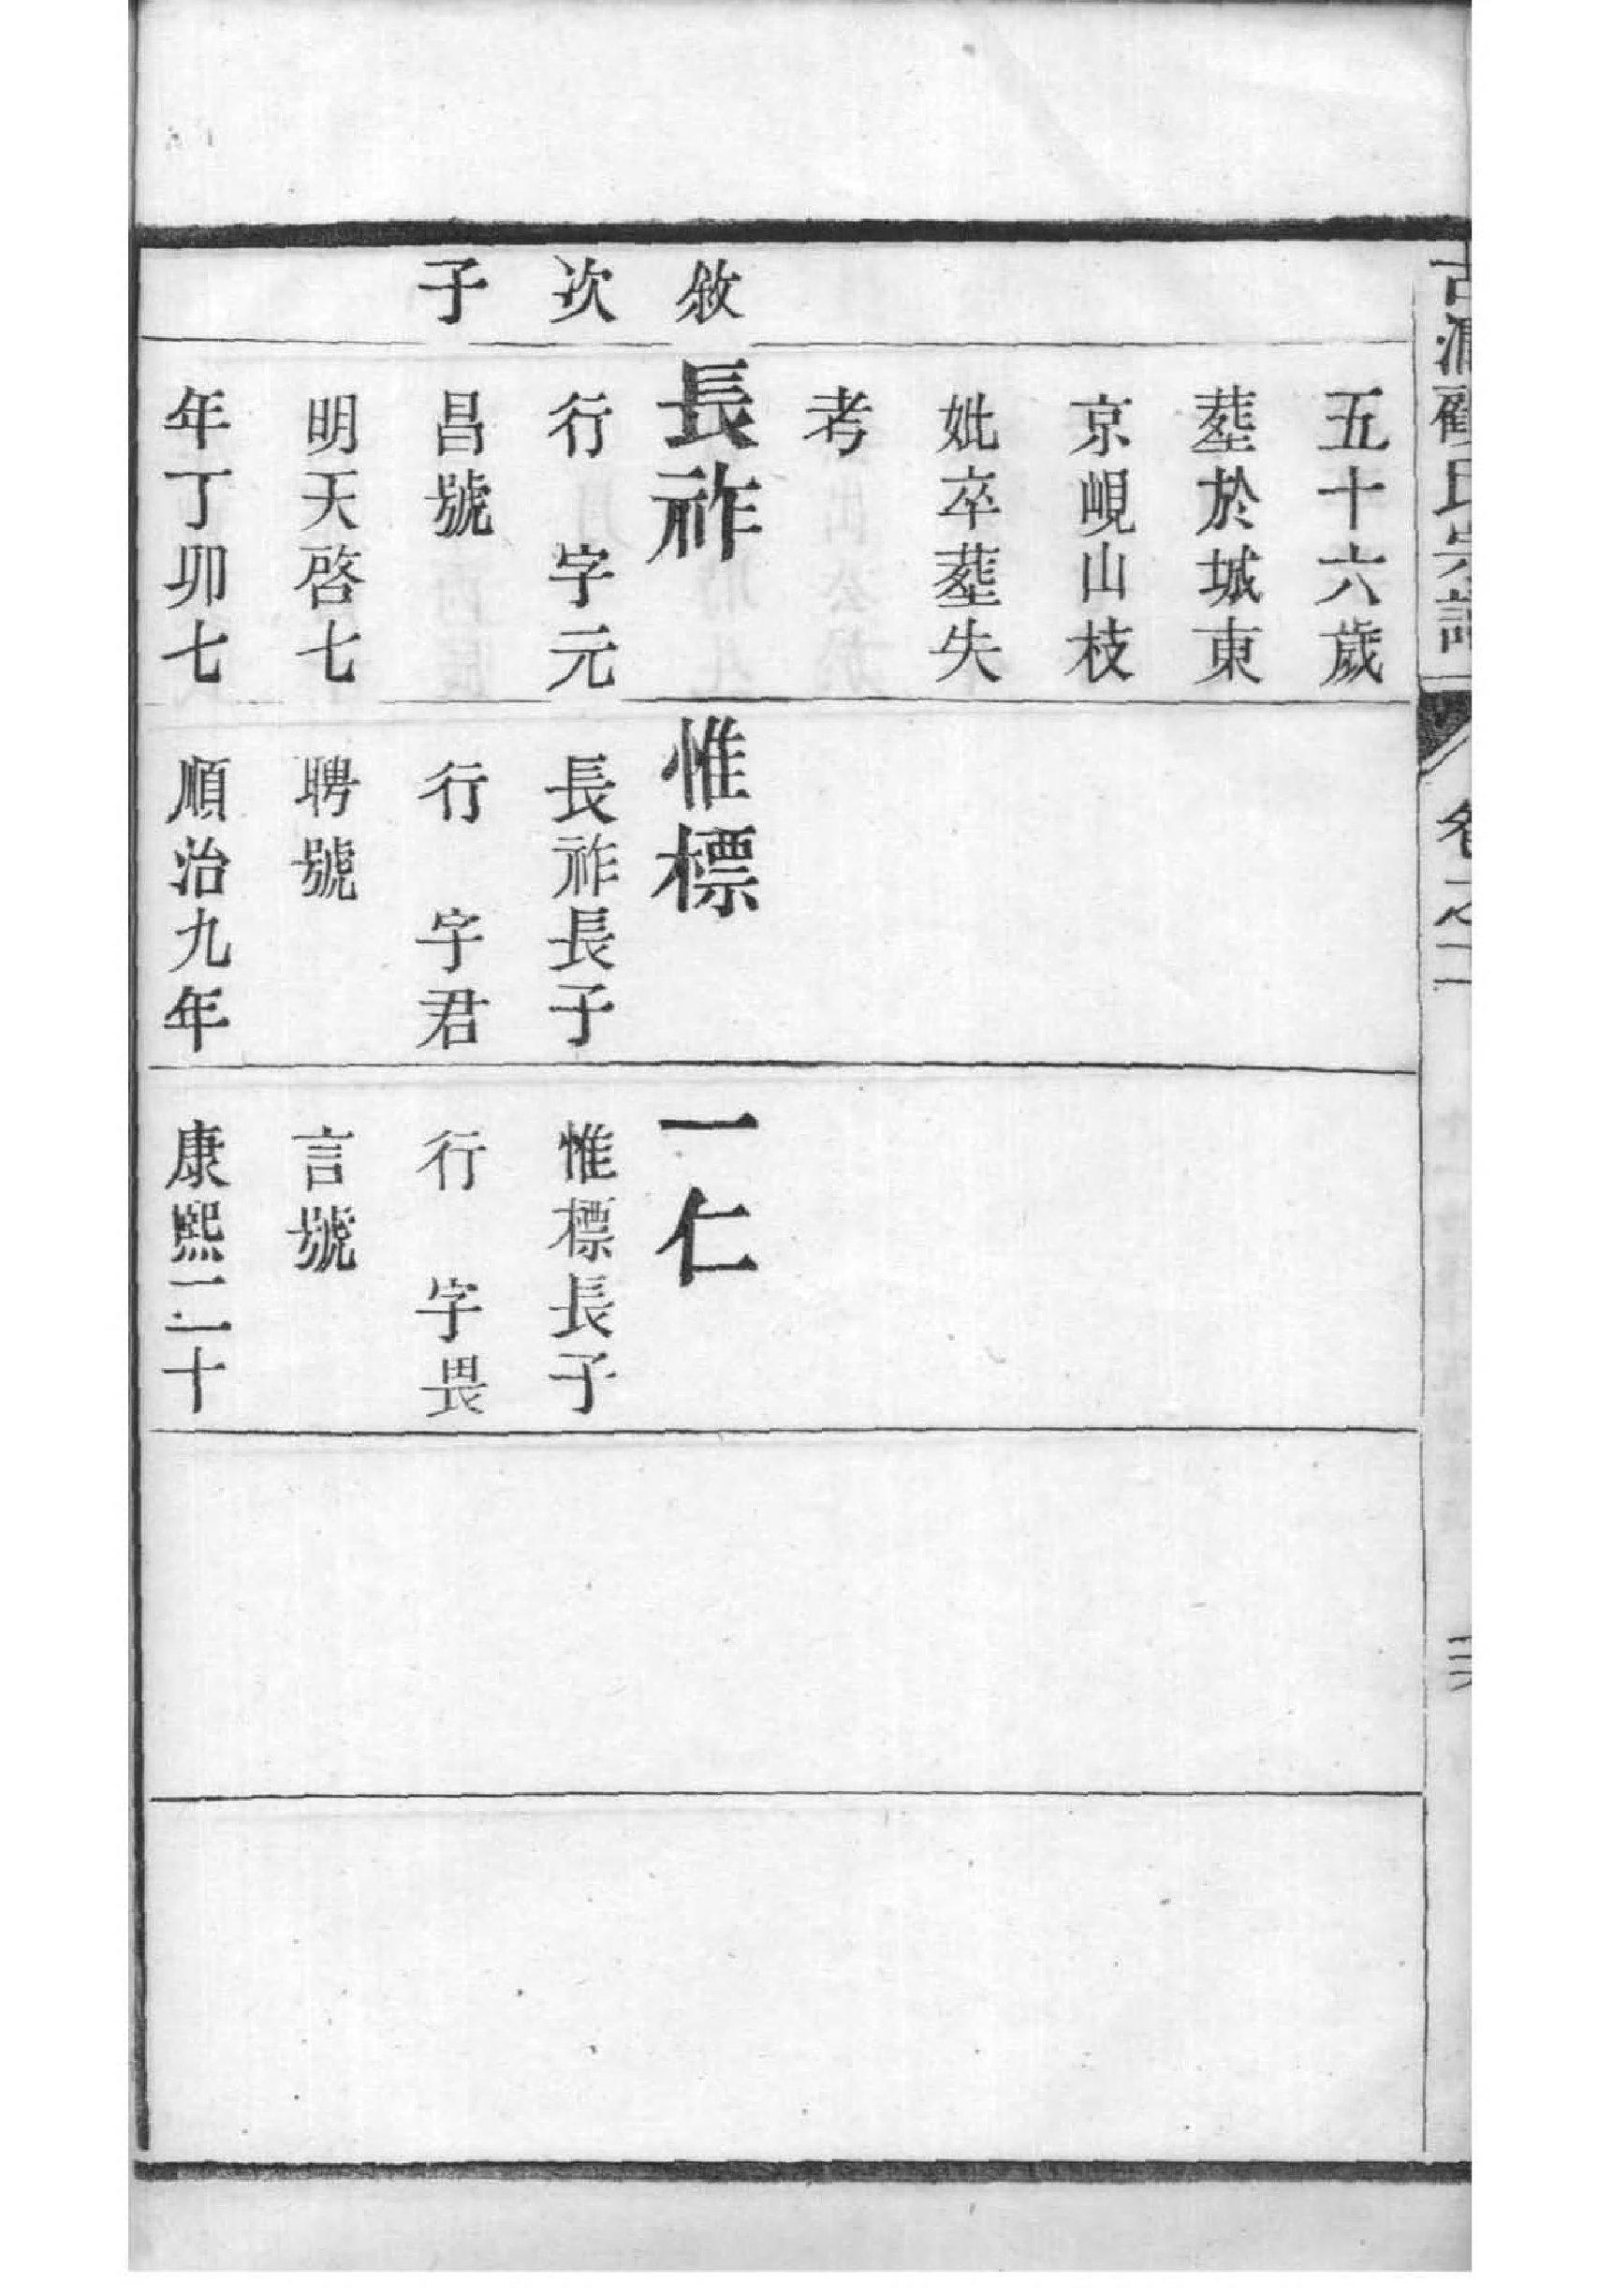 敘
次
子
五十六歲
塟於城東
京峴山枝
妣卒塟失
考
長祚
行 字元
昌號
明天啓七
年丁卯七
惟標
長祚長子
行 字君
聘號
順治九年
一仁
惟標長子
行 字畏
言號
康熙二十